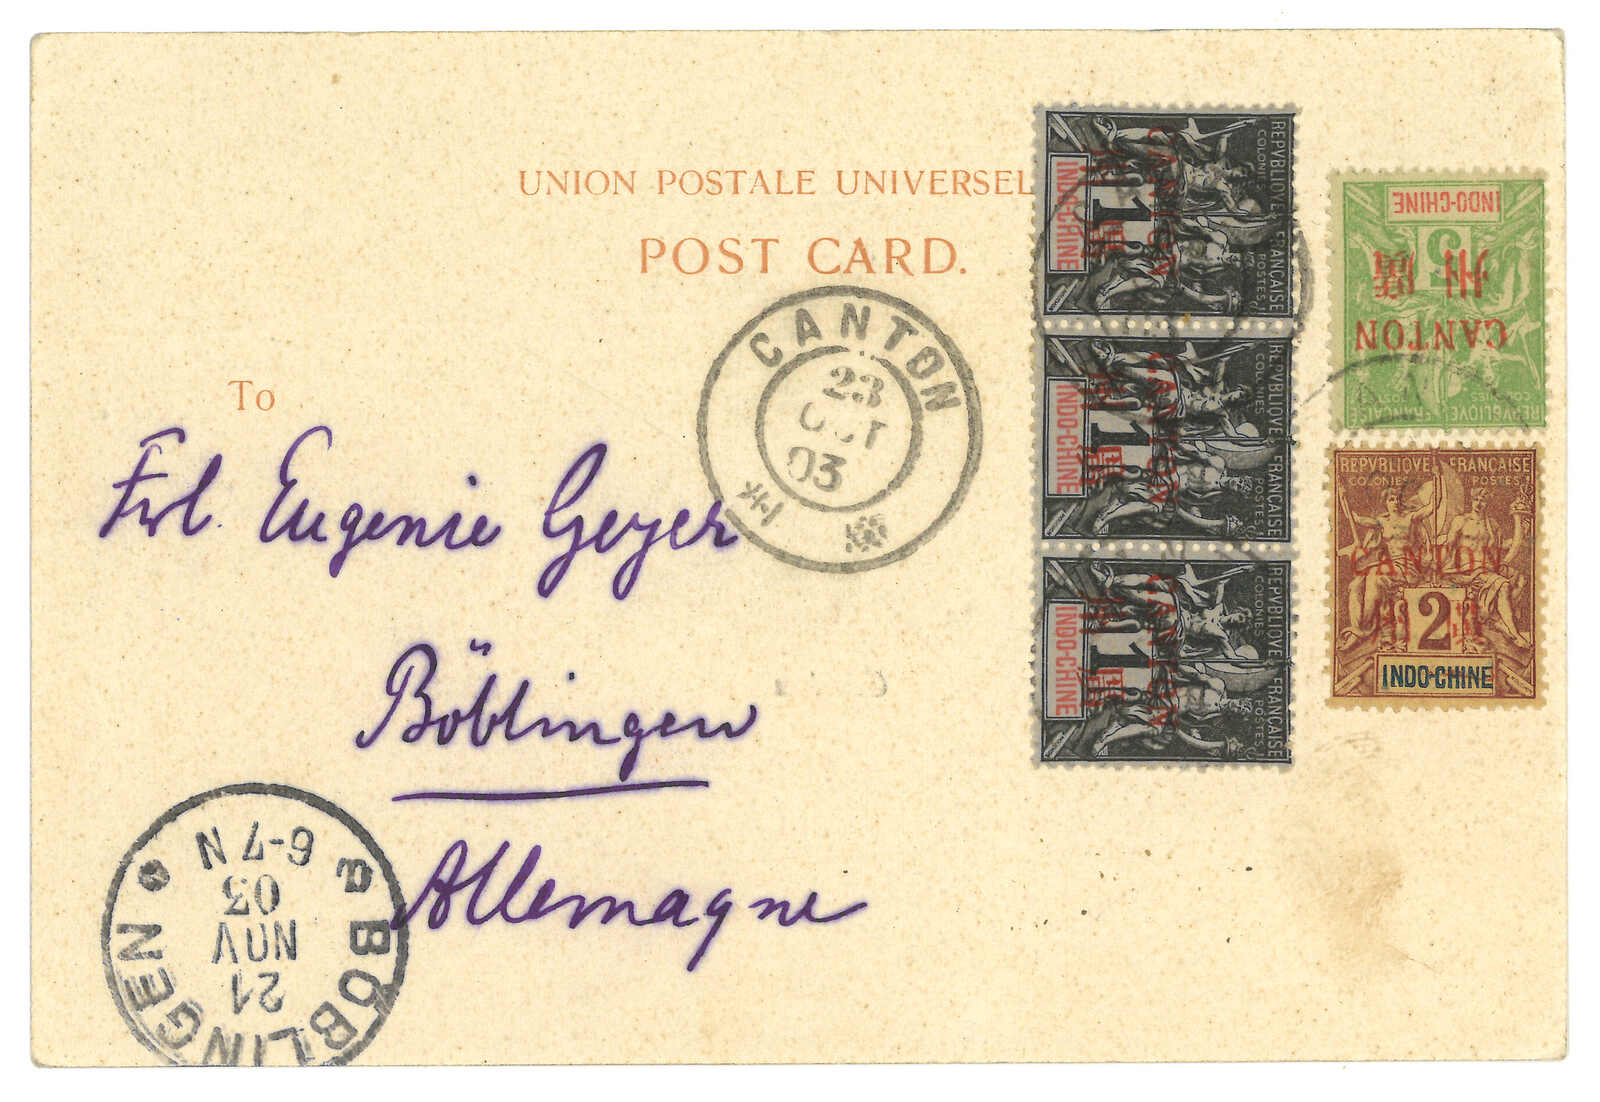 UNION POSTALE UNIVERSEL
POST CARD.
To
Frl. Eugenie Geyer
Böblingen
Allemagne
CANTON
23
OCT
03
BÖBLINGEN
21
NOV
03
6-7 N
REPVBLIQVE FRANÇAISE
COLONIES POSTES
CANTON
廣州
1
INDO-CHINE
REPVBLIQVE FRANÇAISE
COLONIES POSTES
CANTON
廣州
1
INDO-CHINE
REPVBLIQVE FRANÇAISE
COLONIES POSTES
CANTON
廣州
1
INDO-CHINE
REPVBLIQVE FRANÇAISE
CANTON
州廣
5
INDO-CHINE
REPVBLIQVE FRANÇAISE
COLONIES POSTES
CANTON
2
INDO-CHINE